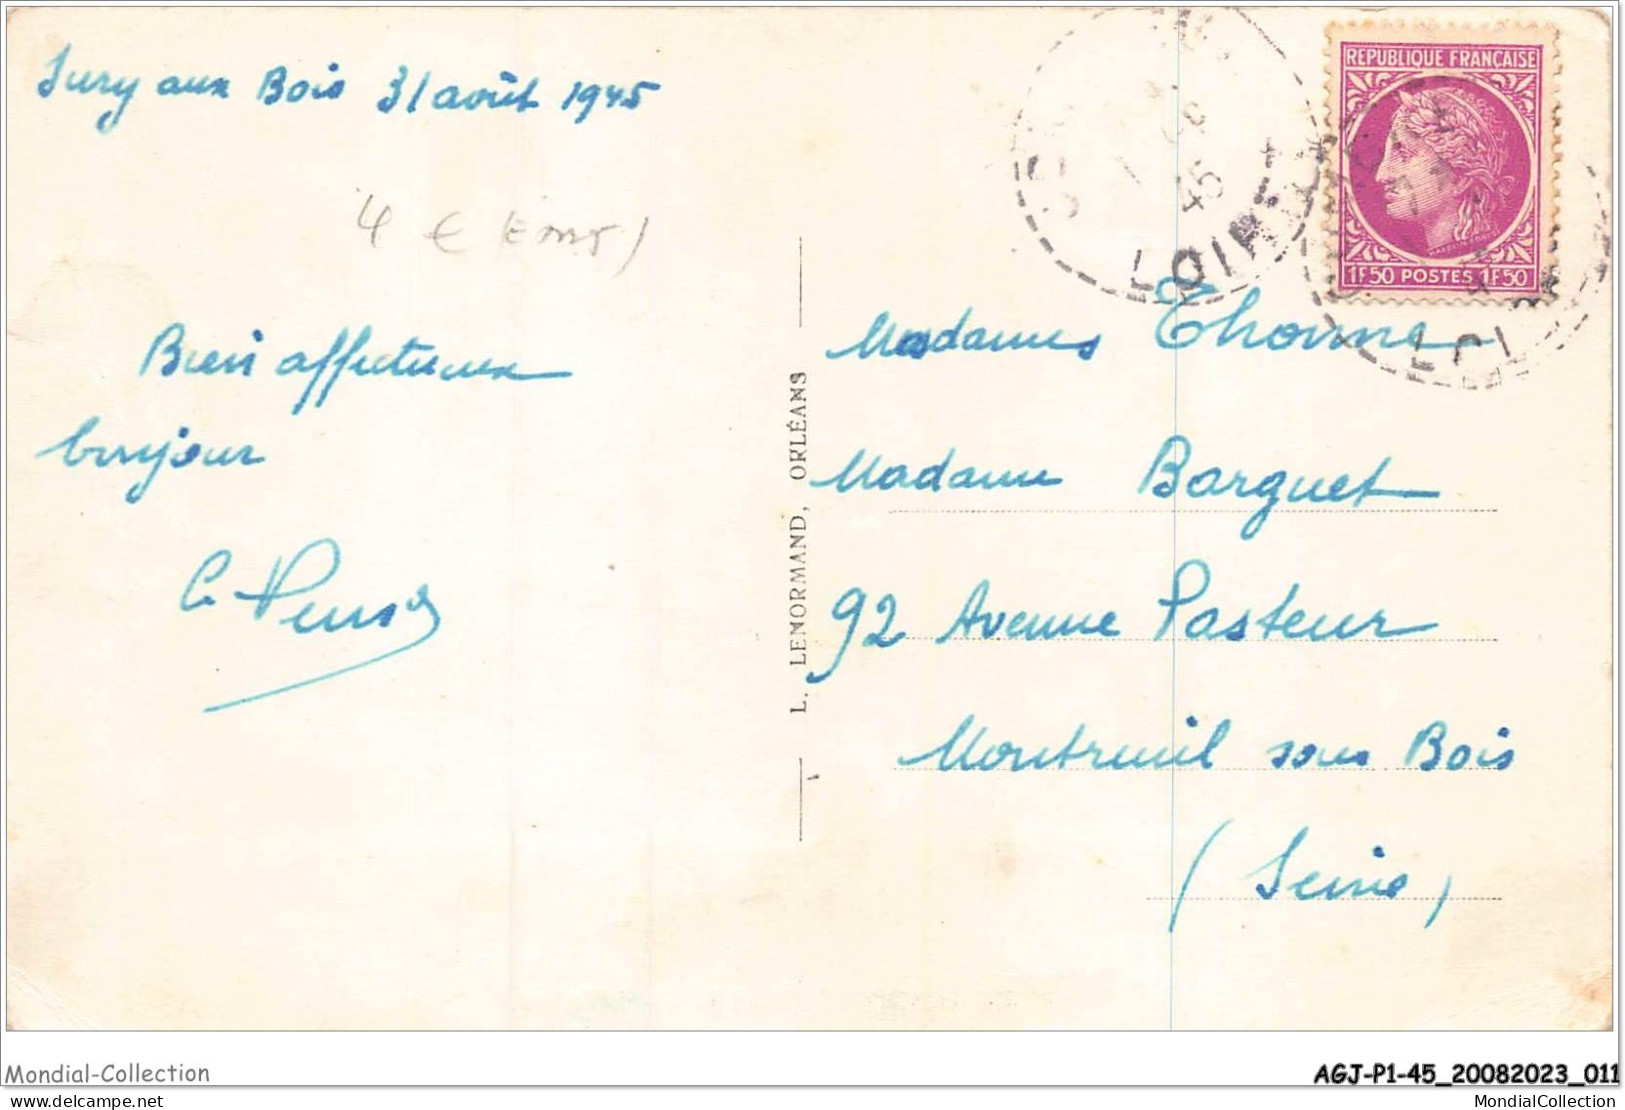 Sury aux Bois 31 août 1945
4 €
Bien affectueux
bonjour
REPUBLIQUE FRANÇAISE
1F50 POSTES 1F50
45
LOIRET
LOI
Mesdames Thomme
Madame Barguet
92 Avenue Pasteur
Montreuil sous Bois
(Seine)
L. LENORMAND, ORLÉANS
Mondial-Collection
AGJ-P1-45_20082023_011
www.delcampe.net
MondialCollection